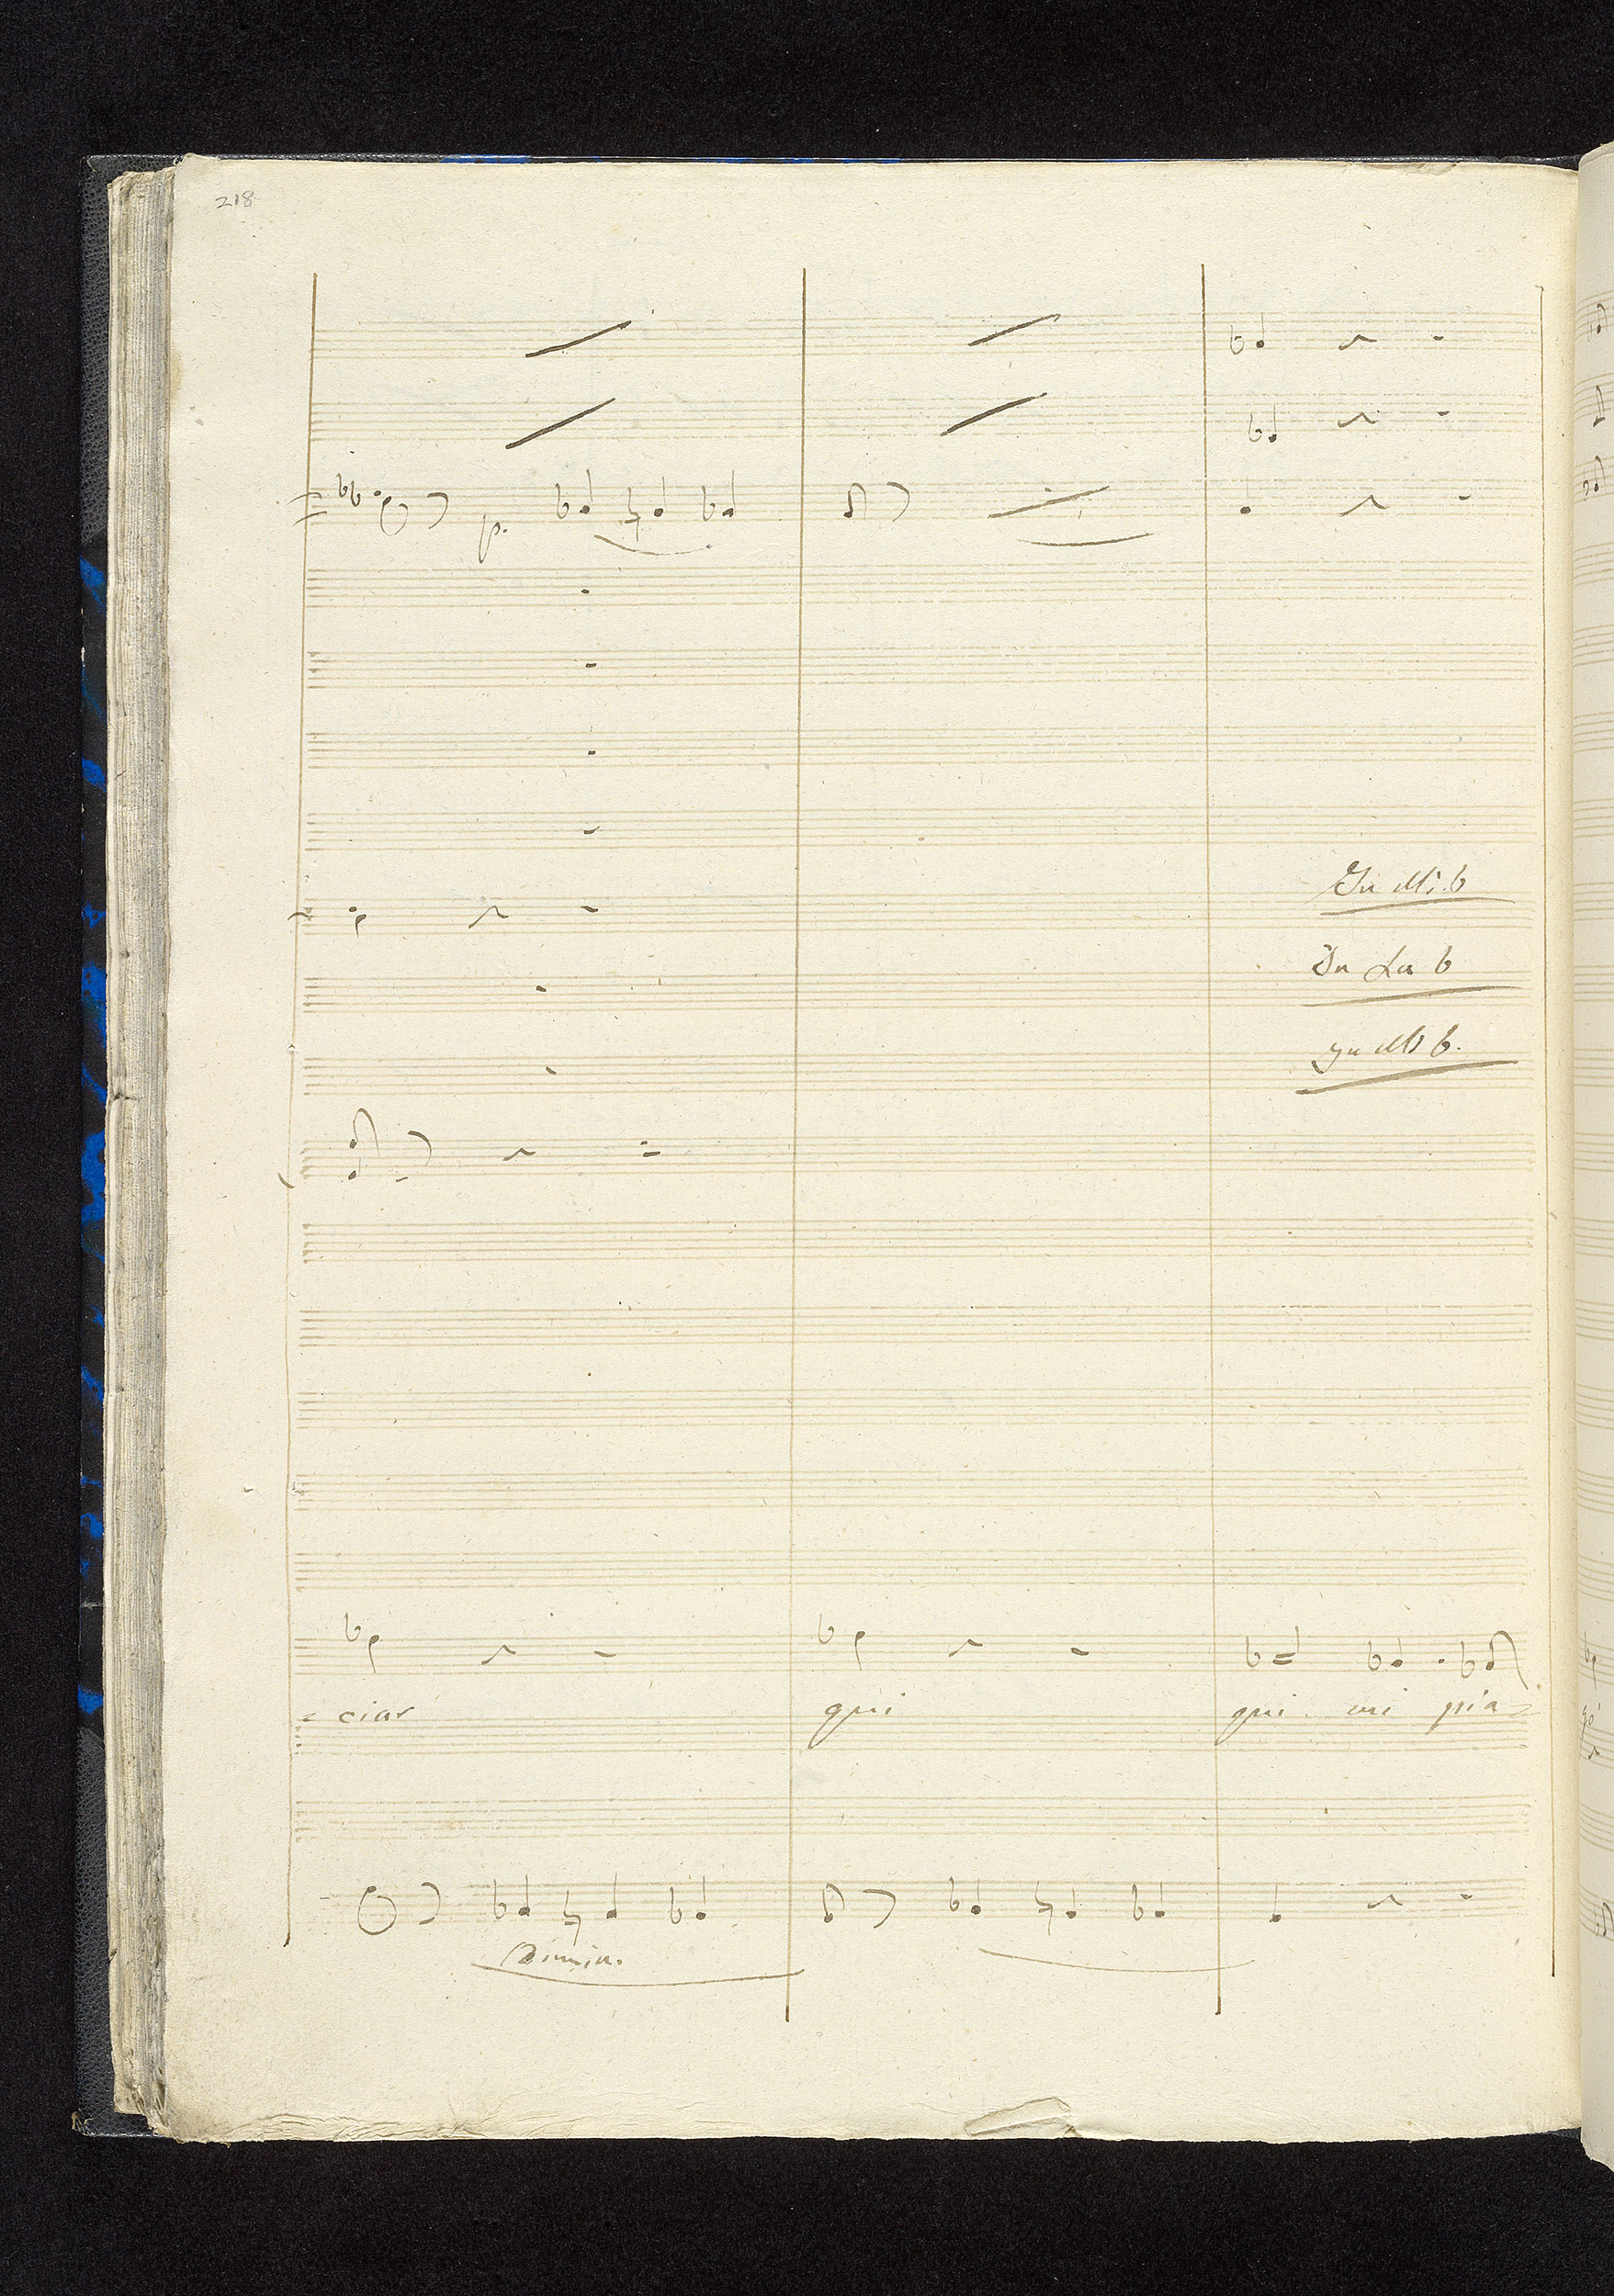 218
p.
In Mi b
In La b
In Mi b.
= ciar qui qui mi pia =
Dimin.